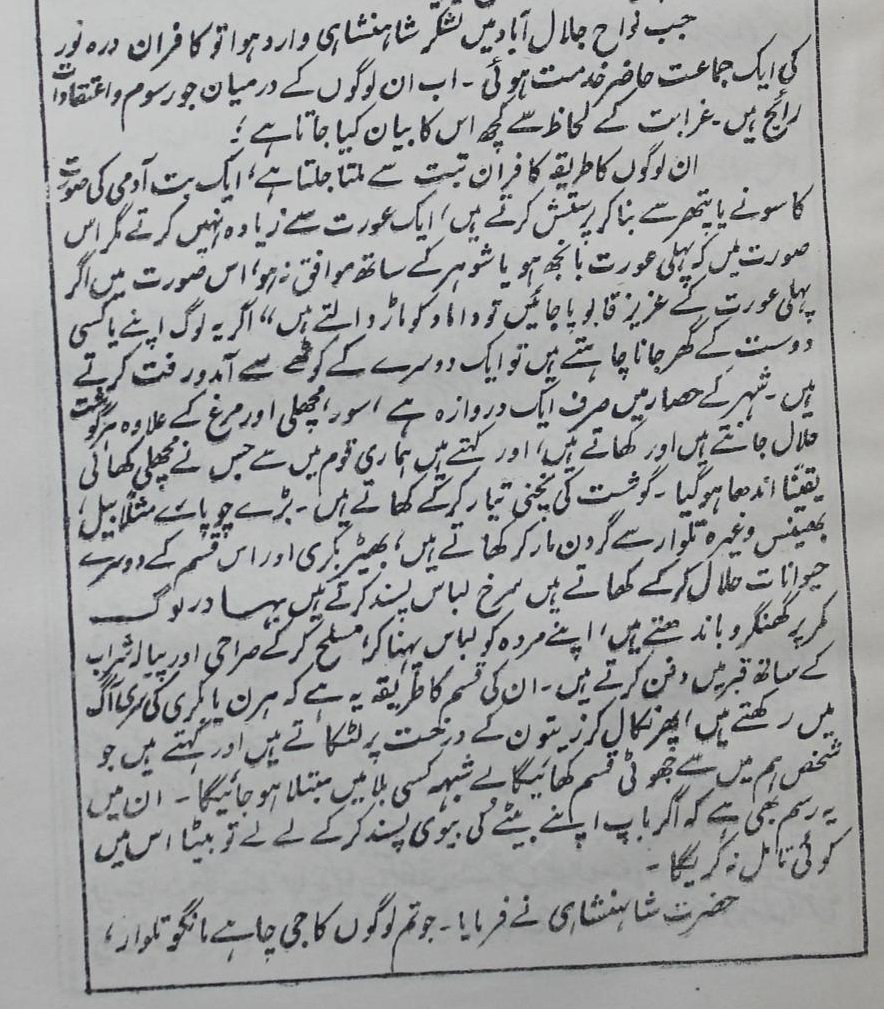 جب نواح جلال آباد میں لشکر شاہنشاہی وارد ہوا تو کافران درہ نور
کی ایک جماعت حاضر خدمت ہوئی ۔ اب ان لوگوں کے درمیان جو رسوم و اعتقادات
رائج ہیں ۔ غرابت کے لحاظ سے کچھ اس کا بیان کیا جاتا ہے ؛
ان لوگوں کا طریقہ کافران تبت سے ملتا جلتا ہے ، ایک بت آدمی کی صورت
کا سونے یا پتھر سے بنا کر پرستش کرتے ہیں ، ایک عورت سے زیادہ نہیں کرتے مگر اس
صورت میں کہ پہلی عورت بانجھ ہو یا شوہر کے ساتھ موافق نہ ہو ، اس صورت میں اگر
پہلی عورت کے عزیز قابو پا جائیں تو داماد کو مار ڈالتے ہیں “ اگر یہ لوگ اپنے یا کسی
دوست کے گھر جانا چاہتے ہیں تو ایک دوسرے کے کوٹھے سے آمد و رفت کرتے
ہیں ۔ شہر کے حصار میں صرف ایک دروازہ ہے ، سور ، مچھلی اور مرغ کے علاوہ ہر گوشت
حلال جانتے ہیں اور کھاتے ہیں ، اور کہتے ہیں ہماری قوم میں سے جس نے مچھلی کھائی
یقیناً اندھا ہو گیا ۔ گوشت کی یخنی تیار کر کے کھاتے ہیں ۔ بڑے چوپائے مثلاً بیل ،
بھینس وغیرہ تلوار سے گردن مار کر کھاتے ہیں ، بھیڑ بکری اور اس قسم کے دوسرے
حیوانات حلال کر کے کھاتے ہیں سرخ لباس پسند کرتے ہیں بہادر لوگ
کمر پر گھنگرو باندھتے ہیں ، اپنے مردہ کو لباس پہنا کر ، مسلح کر کے صراحی اور پیالہ شراب
کے ساتھ قبر میں دفن کرتے ہیں ۔ ان کی قسم کا طریقہ یہ ہے کہ ہرن یا بکری کی سری آگ
میں رکھتے ہیں ، پھر نکال کر زیتون کے درخت پر لٹکاتے ہیں اور کہتے ہیں جو
شخص ہم میں سے جھوٹی قسم کھائیگا بے شبہہ کسی بلا میں مبتلا ہو جائیگا ۔ ان میں
یہ رسم بھی ہے کہ اگر باپ اپنے بیٹے کی بیوی پسند کر کے لے لے تو بیٹا اس میں
کوئی تامل نہ کریگا ۔
حضرت شاہنشاہی نے فرمایا ۔ جو تم لوگوں کا جی چاہے مانگو تلوار ،